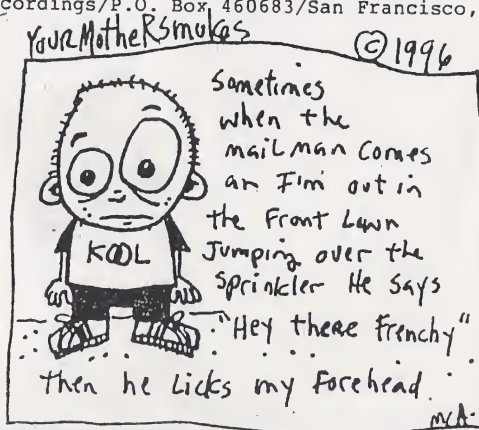 cordings/P.O. Box 460683/San Francisco,
YouR MotheR Smokes
© 1996
Sometimes
when the
mailman comes
an I'm out in
the Front Lawn
Jumping over the
Sprinkler He Says
"Hey there Frenchy"
then he Licks my Forehead.
KOOL
McA.